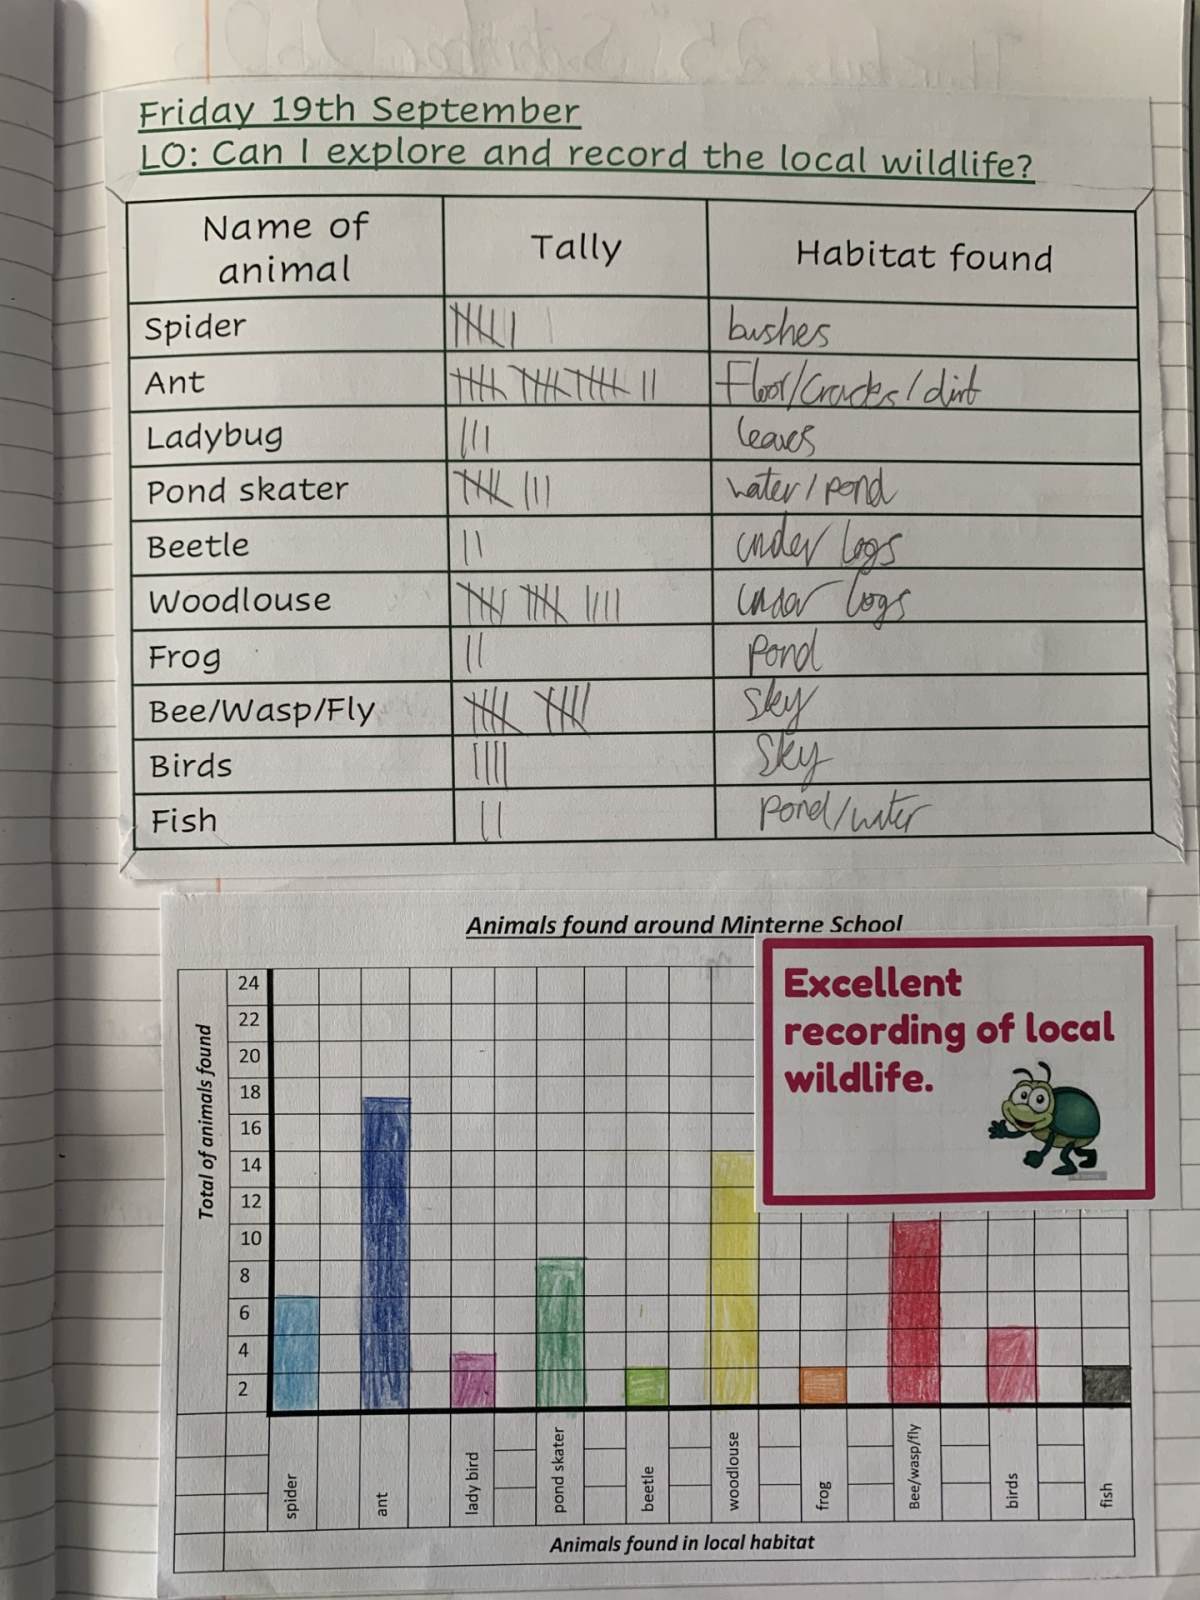 Friday 19th September
LO: Can I explore and record the local wildlife?
Name of animal Tally Habitat found
Spider bushes
Ant Floor/Cracks/dirt
Ladybug leaves
Pond skater water/pond
Beetle under logs
Woodlouse under logs
Frog Pond
Bee/Wasp/Fly Sky
Birds Sky
Fish Pond/water
Animals found around Minterne School
Excellent
recording of local
wildlife.
Total of animals found
24
22
20
18
16
14
12
10
8
6
4
2
spider ant lady bird pond skater beetle woodlouse frog Bee/wasp/fly birds fish
Animals found in local habitat